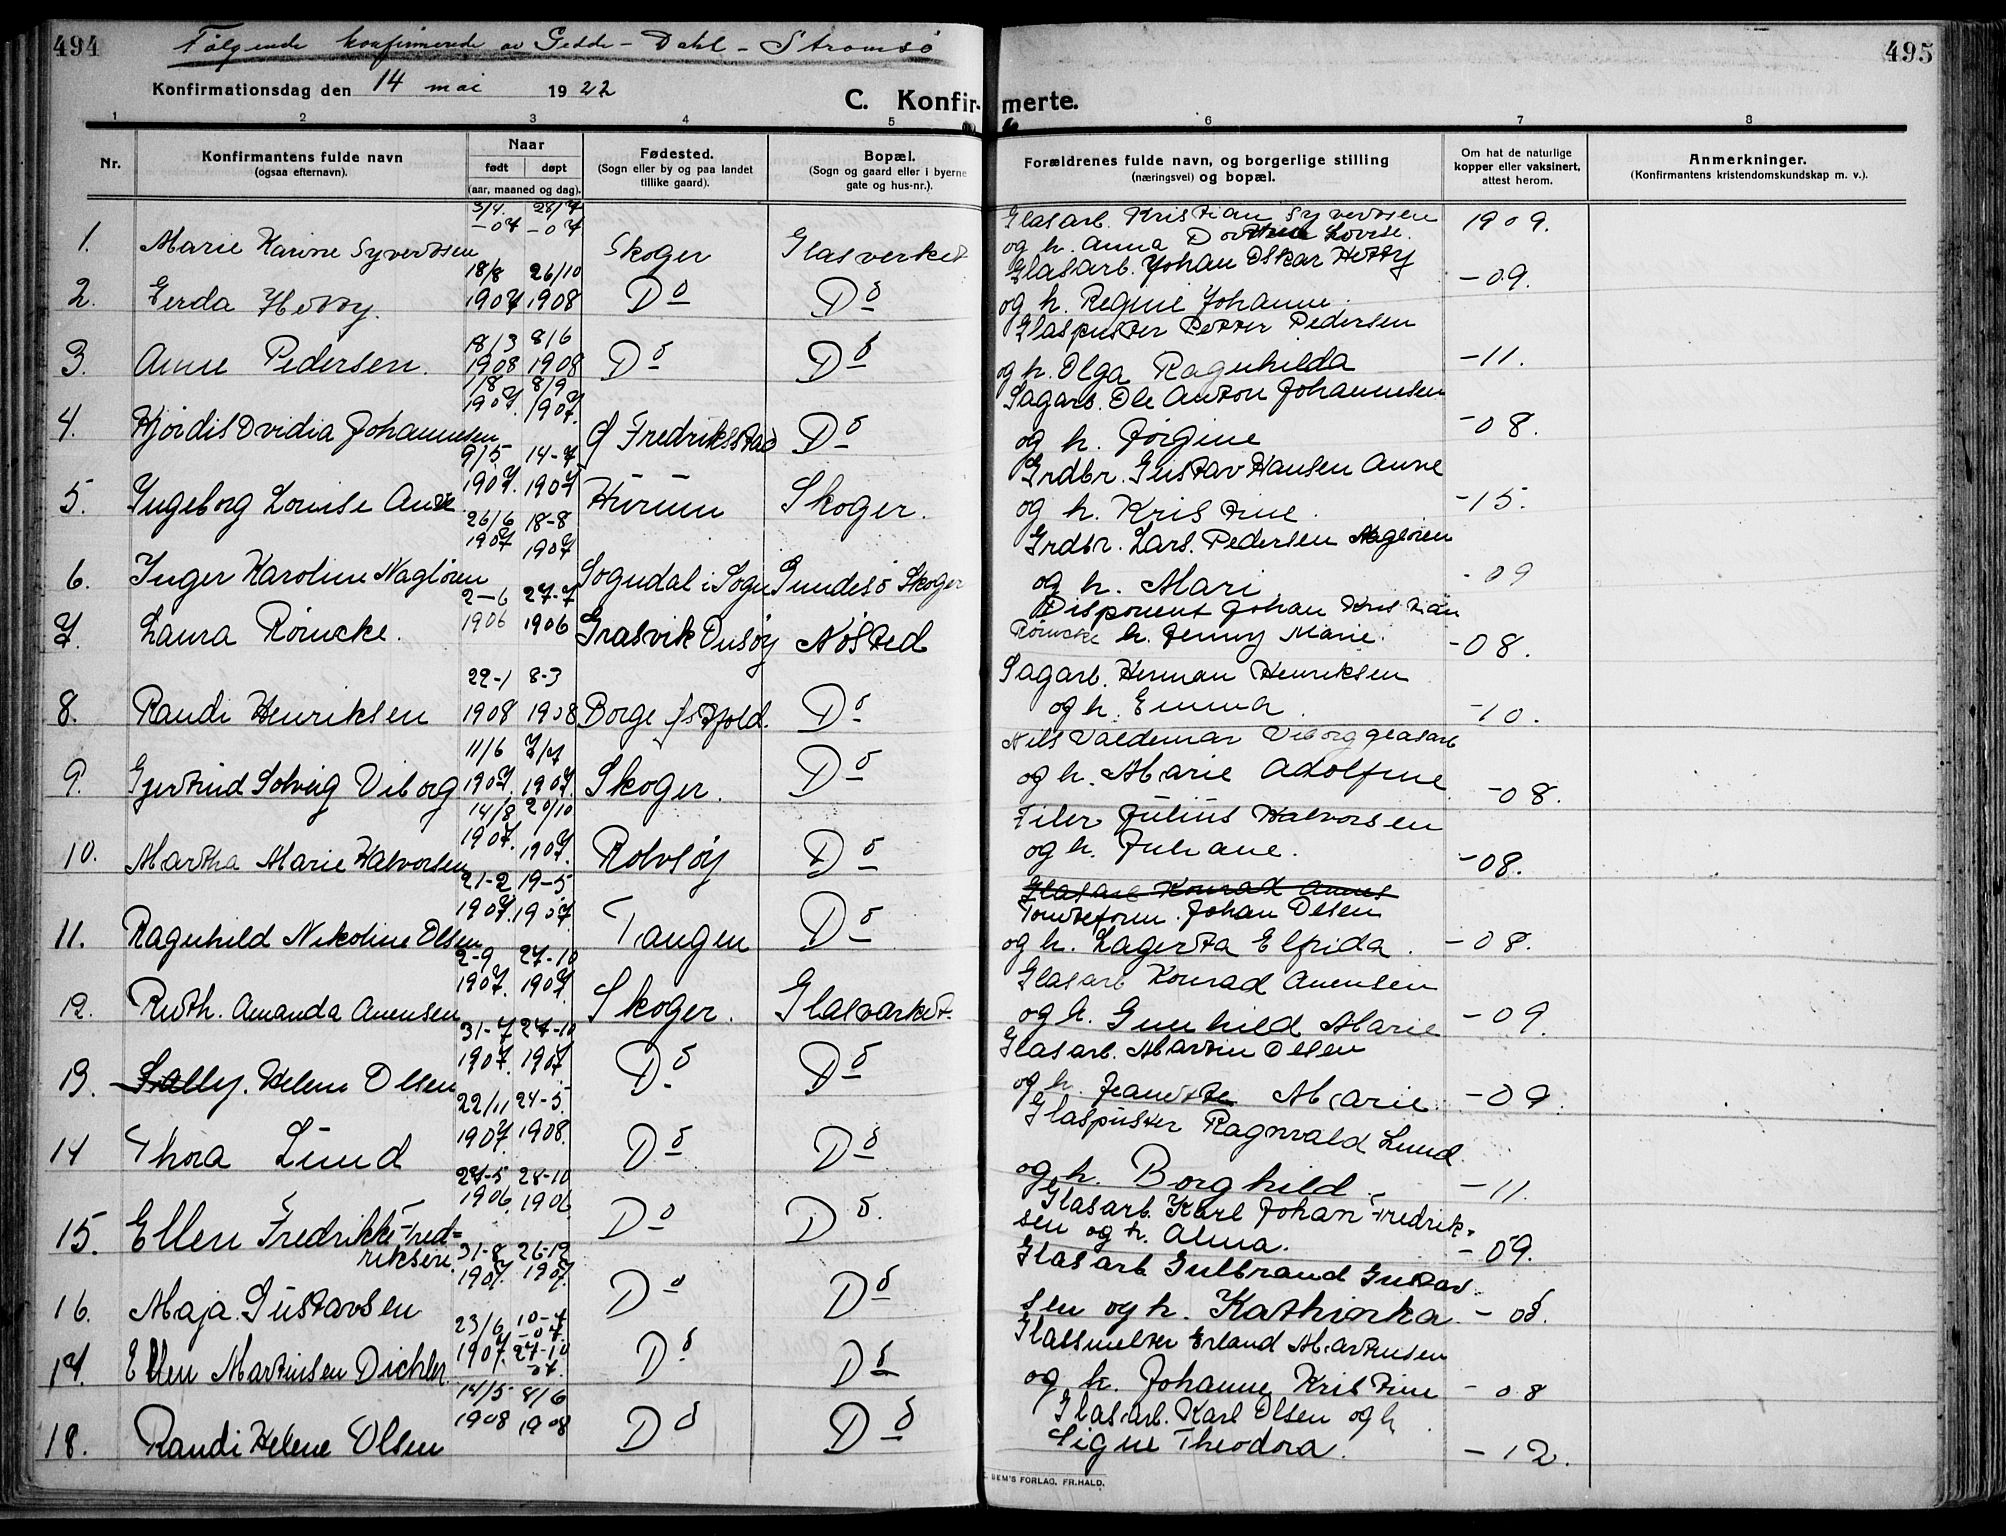 494
Følgende konfirmerede av Gedde-Dahl-Strømsø
495
Konfirmationsdag den 14 mai 1922
C. Konfirmerte.
1 2 3 4 5 6 7 8
Nr.
Konfirmantens fulde navn
(ogsaa efternavn).
Naar
født døpt
(aar, maaned og dag).
Fødested.
(Sogn eller by og paa landet
tillike gaard).
Bopæl.
(Sogn og gaard eller i byerne
gate og hus-nr.).
Forældrenes fulde navn, og borgerlige stilling
(næringsvei) og bopæl.
Om hat de naturlige
kopper eller vaksinert,
attest herom.
Anmerkninger.
(Konfirmantens kristendomskundskap m. v.).
1. Marie Karine Syvertsen 3/4 -07 28/7 -07 Skoger Glasverket
Glasarb. Kristian Syvertsen
og h. Anna Lovise. 1909.
2. Gerda Hotty. 18/8 1907 26/10 1908 Do Do
Glasarb. Johan Oskar Hotty
og h. Regine Johanne. -09.
3. Anne Pedersen. 18/3 1908 8/6 1908 Do Do
Glaspuster Petter Pedersen
og h. Olga Ragnhilda -11.
4. Hjørdis Ovidia Johannesen 1/8 1907. 8/9 1907. Ø Fredriksstad Do
Sagarb. Ole Anton Johannesen
og h. Jørgine -08.
5. Ingeborg Lovise Aune 9/5 1907. 14-7 1907 Hurum Skoger.
Grdbr. Gustav Hansen Aune
og h. Kristine. -15.
6. Inger Karoline Nagløren 26/6 1907 18-8 1907 Sogndal i Sogn Gundesø Skoger
Grdbr. Lars Pedersen Nagløren
og h. Mari -09
7. Laura Römcke. 2-6 1906 27-7 1906 Græsvik Onsøy Nøsted
Disponent Johan Kristian
Römcke h. Jenny Marie. -08.
8. Randi Henriksen 22-1 1908 8-3 1908 Borge Østfold. Do
Sagarb. Herman Henriksen
og h. Emma. -10.
9. Gjertrud Solveig Viborg 11/6 1907. 7/7 1907. Skoger. Do
Nils Valdemar Viborg glasarb
og h. Marie Adolfine -08.
10. Martha Marie Halvorsen 14/8 1907. 20/10 1907. Rolvsøy Do
Filer Julius Halvorsen
og h. Juliane. -08.
11. Ragnhild Nikoline Olsen 21-2 1907. 19-5 1907. Tangen Do
Glasarb Konrad
Johan Olsen
og h. Lagerta Elfrida. -08.
12. Ruth. Amanda Amensen 2-9 1907. 27-10 1907. Skoger. Glasverket.
Glasarb Konrad Amensen
og h. Gunhild Marie -09.
13. Sally. Helene Olsen 31-7 1907. 27-10 1907 Do Do
Glasarb. Martin Olsen
og h. Jeanette Marie. -09.
14 Thora Lund 22/11 1907. 24-5. 1908. Do Do
Glaspuster Ragnvald Lund.
og h. Borghild. -11.
15. Ellen Fredrikke Fred=
riksen. 24-5 1906. 28-10 1906. Do Do
Glasarb. Karl Johan Fredrik-
sen og h. Alma. -09.
16. Maja Gustavsen 31-8 1907. 26-12 1907. Do Do
Glasarb Gulbrand Gustav
sen og h. Kathinka -08.
17. Ellen Martinsen Dichler 23/6 1907. 10-7 -07. 27-10 -07. Do Do
Glassmelter Erland Martinsen
og h. Johanne Kristine -08
18. Randi Helene Olsen 14/5 1908 8/6 1908 Do Do
Glasarb. Karl Olsen og h
Signe Theodora. -12.
BEM'S FORLAG. FR.HALD.